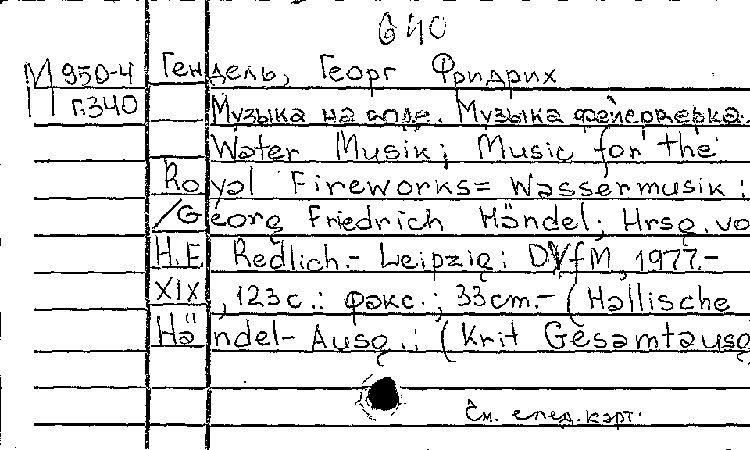 640
М 950-4 Гендель, Георг Фридрих
П г.340 Музыка на воде. Музыка фейерверка.
Water Musik; Music for the
Royal Fireworks = Wassermusik :
/Georg Friedrich Händel; Hrsg. vo
H.E Redlich.- Leipzig: DVfM, 1977.-
XIX, 123 с.: факс.; 33cm.- (Hallische
Händel-Ausg.: (Krit Gesamtausg
См. след. карт.